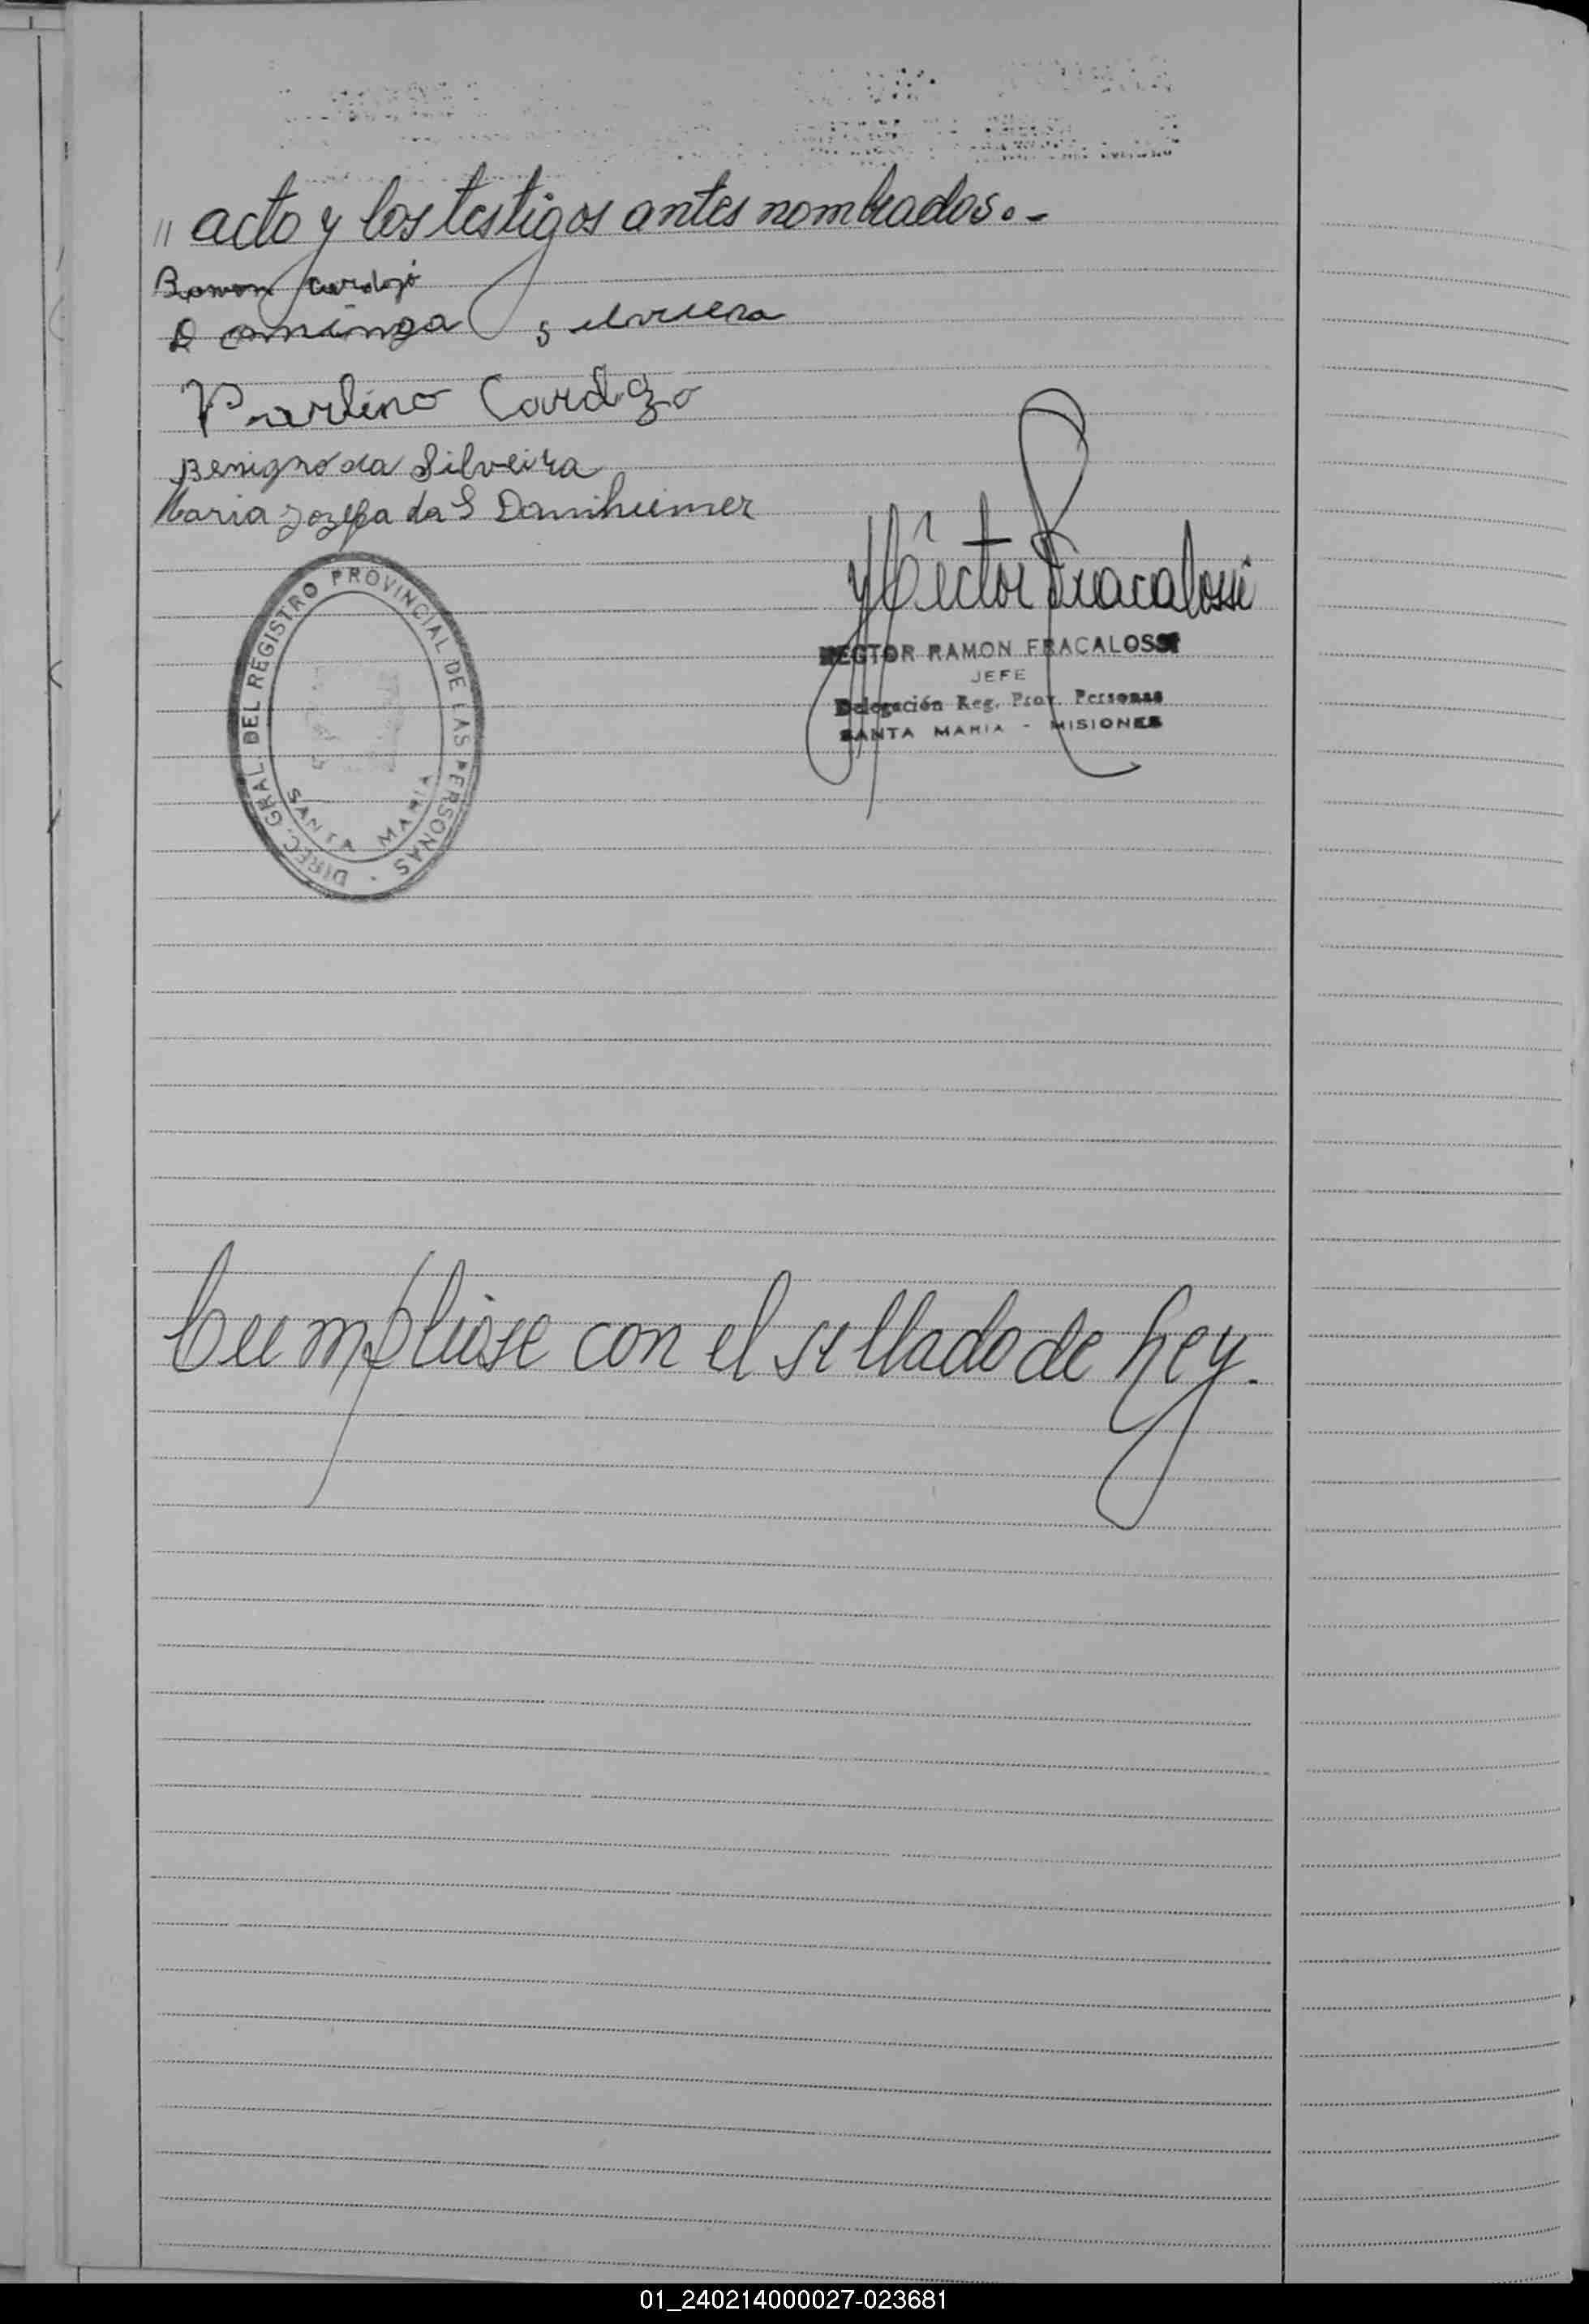 " acto y los testigos antes nombrados.-
Ramon Cardozo
Dominga Silveira
Cardozo
Benigno da Silveira
Maria Jozefa da S Dannheimer
Héctor Fracalossi
HECTOR RAMON FRACALOSSI
JEFE
Delegación Reg. Prov. Personas
SANTA MARIA - MISIONES
DIREC. GRAL. DEL REGISTRO PROVINCIAL DE LAS PERSONAS -
SANTA MARIA
Cumpliose con el sellado de hey.
01_240214000027-023681